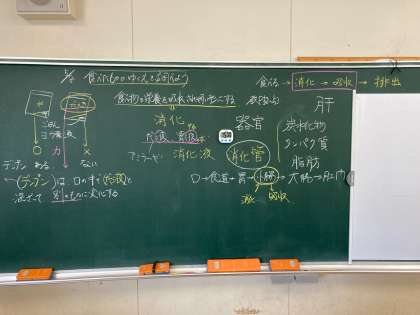 食べる→消化→吸収→排出
食べ物の栄養を吸収されやすい形にする
消化
だ液、胃液
アミラーゼ
消化液
器官
消化管
肝
炭水化物
タンパク質
脂肪
口→食道→胃→小腸→大腸→肛門
消化 吸収
ごはん
ヨウ素液
○ カ ×
デンプン ある ない
(デンプン)は、口の中で(だ液)と
混ざって別のものに変化する